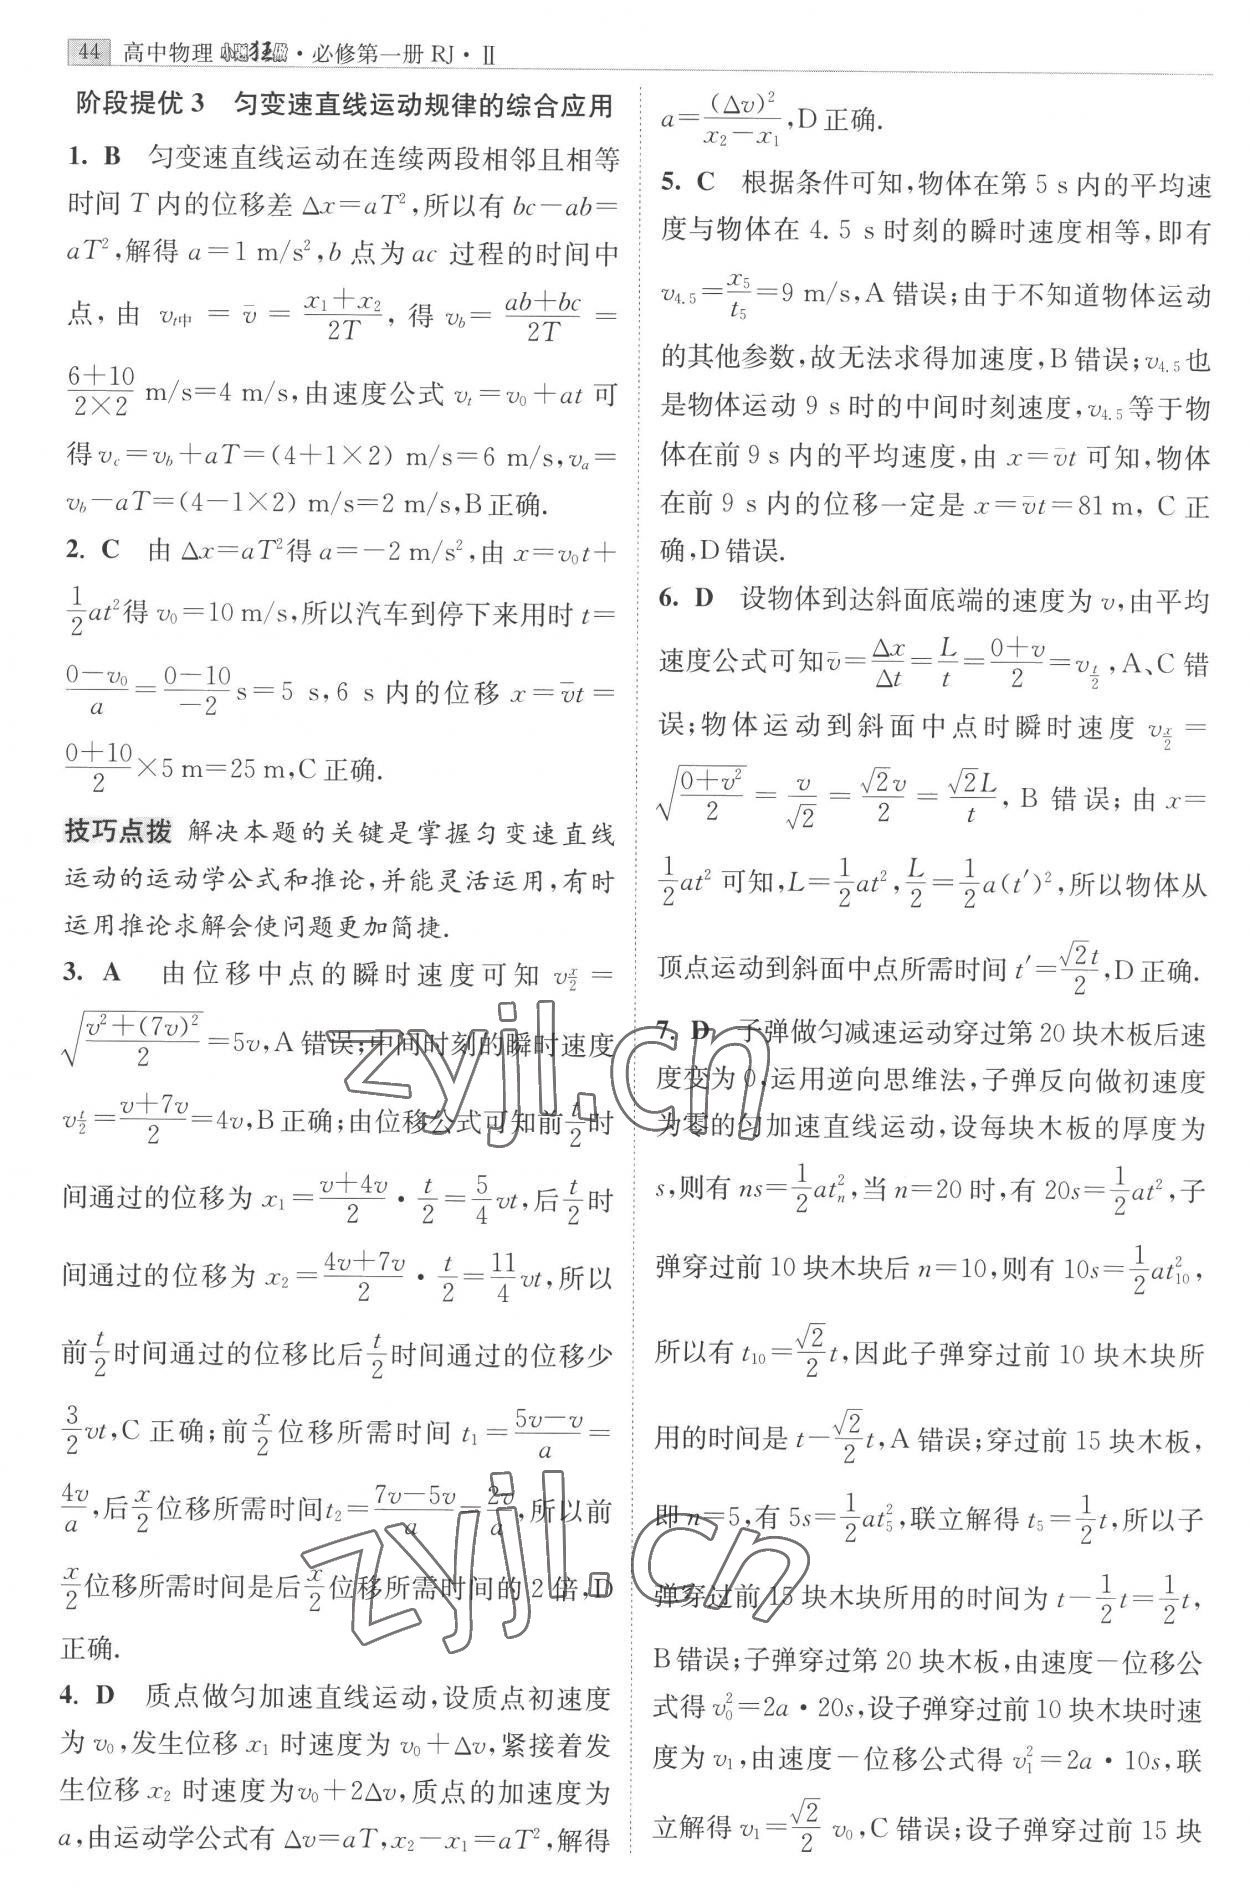 44 高中物理 小题狂做·必修第一册 RJ·Ⅱ
阶段提优 3 匀变速直线运动规律的综合应用
1. B 匀变速直线运动在连续两段相邻且相等
时间 T 内的位移差 Δx=aT²,所以有 bc-ab=
aT²,解得 a=1 m/s²,b 点为 ac 过程的时间中
点,由 v_{t中} = \bar{v} = \frac{x₁+x₂}{2T}, 得 v_b = \frac{ab+bc}{2T} =
\frac{6+10}{2×2} m/s=4 m/s,由速度公式 v_t=v₀+at 可
得 v_c=v_b+aT=(4+1×2) m/s=6 m/s,v_a=
v_b-aT=(4-1×2) m/s=2 m/s,B 正确.
2. C 由 Δx=aT²得 a=-2 m/s²,由 x=v₀t+
\frac{1}{2}at²得 v₀=10 m/s,所以汽车到停下来用时 t=
\frac{0-v₀}{a}=\frac{0-10}{-2}s=5 s,6 s 内的位移 x=\bar{v}t=
\frac{0+10}{2}×5 m=25 m,C 正确.
技巧点拨 解决本题的关键是掌握匀变速直线
运动的运动学公式和推论,并能灵活运用,有时
运用推论求解会使问题更加简捷.
3. A 由位移中点的瞬时速度可知 v_{\frac{x}{2}}=
\sqrt{\frac{v²+(7v)²}{2}}=5v,A 错误;中间时刻的瞬时速度
v_{\frac{t}{2}}=\frac{v+7v}{2}=4v,B 正确;由位移公式可知前\frac{t}{2}时
间通过的位移为 x₁=\frac{v+4v}{2}·\frac{t}{2}=\frac{5}{4}vt,后\frac{t}{2}时
间通过的位移为 x₂=\frac{4v+7v}{2}·\frac{t}{2}=\frac{11}{4}vt,所以
前\frac{t}{2}时间通过的位移比后\frac{t}{2}时间通过的位移少
\frac{3}{2}vt,C 正确;前\frac{x}{2}位移所需时间 t₁=\frac{5v-v}{a}=
\frac{4v}{a},后\frac{x}{2}位移所需时间t₂=\frac{7v-5v}{a}=\frac{2v}{a},所以前
\frac{x}{2}位移所需时间是后\frac{x}{2}位移所需时间的 2 倍,D
正确.
4. D 质点做匀加速直线运动,设质点初速度
为 v₀,发生位移 x₁ 时速度为 v₀+Δv,紧接着发
生位移 x₂ 时速度为v₀+2Δv,质点的加速度为
a,由运动学公式有 Δv=aT,x₂-x₁=aT²,解得
a=\frac{(Δv)²}{x₂-x₁},D 正确.
5. C 根据条件可知,物体在第 5 s 内的平均速
度与物体在 4.5 s 时刻的瞬时速度相等,即有
v_{4.5}=\frac{x₅}{t₅}=9 m/s,A 错误;由于不知道物体运动
的其他参数,故无法求得加速度,B 错误;v_{4.5}也
是物体运动 9 s 时的中间时刻速度,v_{4.5}等于物
体在前 9 s 内的平均速度,由 x=\bar{v}t 可知,物体
在前 9 s 内的位移一定是 x=\bar{v}t=81 m, C 正
确,D 错误.
6. D 设物体到达斜面底端的速度为 v,由平均
速度公式可知\bar{v}=\frac{Δx}{Δt}=\frac{L}{t}=\frac{0+v}{2}=v_{\frac{t}{2}},A、C 错
误;物体运动到斜面中点时瞬时速度 v_{\frac{x}{2}}=
\sqrt{\frac{0+v²}{2}}=\frac{v}{\sqrt{2}}=\frac{\sqrt{2}v}{2}=\frac{\sqrt{2}L}{t}, B 错误; 由 x=
\frac{1}{2}at² 可知,L=\frac{1}{2}at²,\frac{L}{2}=\frac{1}{2}a(t′)²,所以物体从
顶点运动到斜面中点所需时间 t′=\frac{\sqrt{2}t}{2},D 正确.
7. D 子弹做匀减速运动穿过第 20 块木板后速
度变为 0,运用逆向思维法,子弹反向做初速度
为零的匀加速直线运动,设每块木板的厚度为
s,则有 ns=\frac{1}{2}at_n²,当 n=20 时,有 20s=\frac{1}{2}at²,子
弹穿过前 10 块木块后 n=10,则有 10s=\frac{1}{2}at₁₀²,
所以有 t₁₀=\frac{\sqrt{2}}{2}t,因此子弹穿过前 10 块木块所
用的时间是 t-\frac{\sqrt{2}}{2}t,A 错误;穿过前 15 块木板,
即 n=5,有 5s=\frac{1}{2}at₅²,联立解得 t₅=\frac{1}{2}t,所以子
弹穿过前 15 块木块所用的时间为 t-\frac{1}{2}t=\frac{1}{2}t,
B 错误;子弹穿过第 20 块木板,由速度一位移公
式得 v₀²=2a·20s,设子弹穿过前 10 块木块时速
度为 v₁,由速度一位移公式得 v₁²=2a·10s,联
立解得 v₁=\frac{\sqrt{2}}{2} v₀,C 错误;设子弹穿过前 15 块
zyjl.cn
zyjl.cn